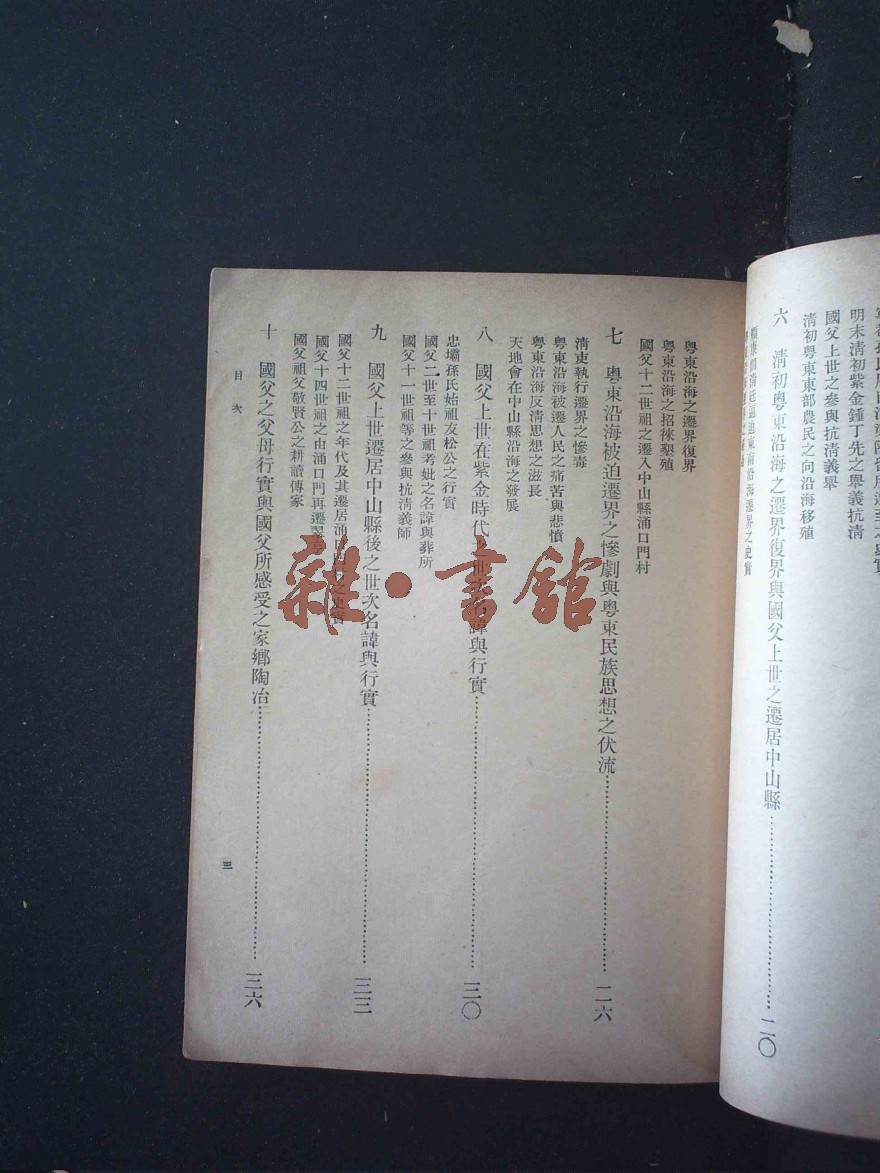 明末清初紫金鍾丁先之舉義抗清
國父上世之參與抗清義舉
清初粵東東部農民之向沿海移殖
六 清初粵東沿海之遷界復界與國父上世之遷居中山縣……二〇
迫東南沿海遷界之史實
粵東沿海之遷界復界
粵東沿海之招徠墾殖
國父十二世祖之遷入中山縣涌口門村
七 粵東沿海被迫遷界之慘劇與粵東民族思想之伏流……二六
清吏執行遷界之慘毒
粵東沿海被遷人民之痛苦與悲憤
粵東沿海反清思想之滋長
天地會在中山縣沿海之發展
八 國父上世在紫金時代之世次名諱與行實……三〇
忠壩孫氏始祖友松公之行實
國父二世至十世祖考妣之名諱與葬所
國父十一世祖等之參與抗清義師
九 國父上世遷居中山縣後之世次名諱與行實……三三
國父十二世祖之年代及其遷居涌口門村之史實
國父十四世祖之由涌口門再遷翠亨
國父祖父敬賢公之耕讀傳家
十 國父之父母行實與國父所感受之家鄉陶冶……三六
目次
三
雜·書館